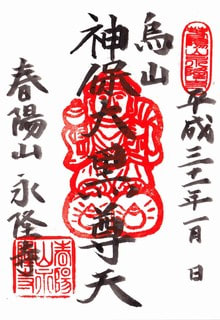 平成三十一年一月 日
烏山
神保大黒尊天
春陽山 永隆寺
春陽山永隆寺